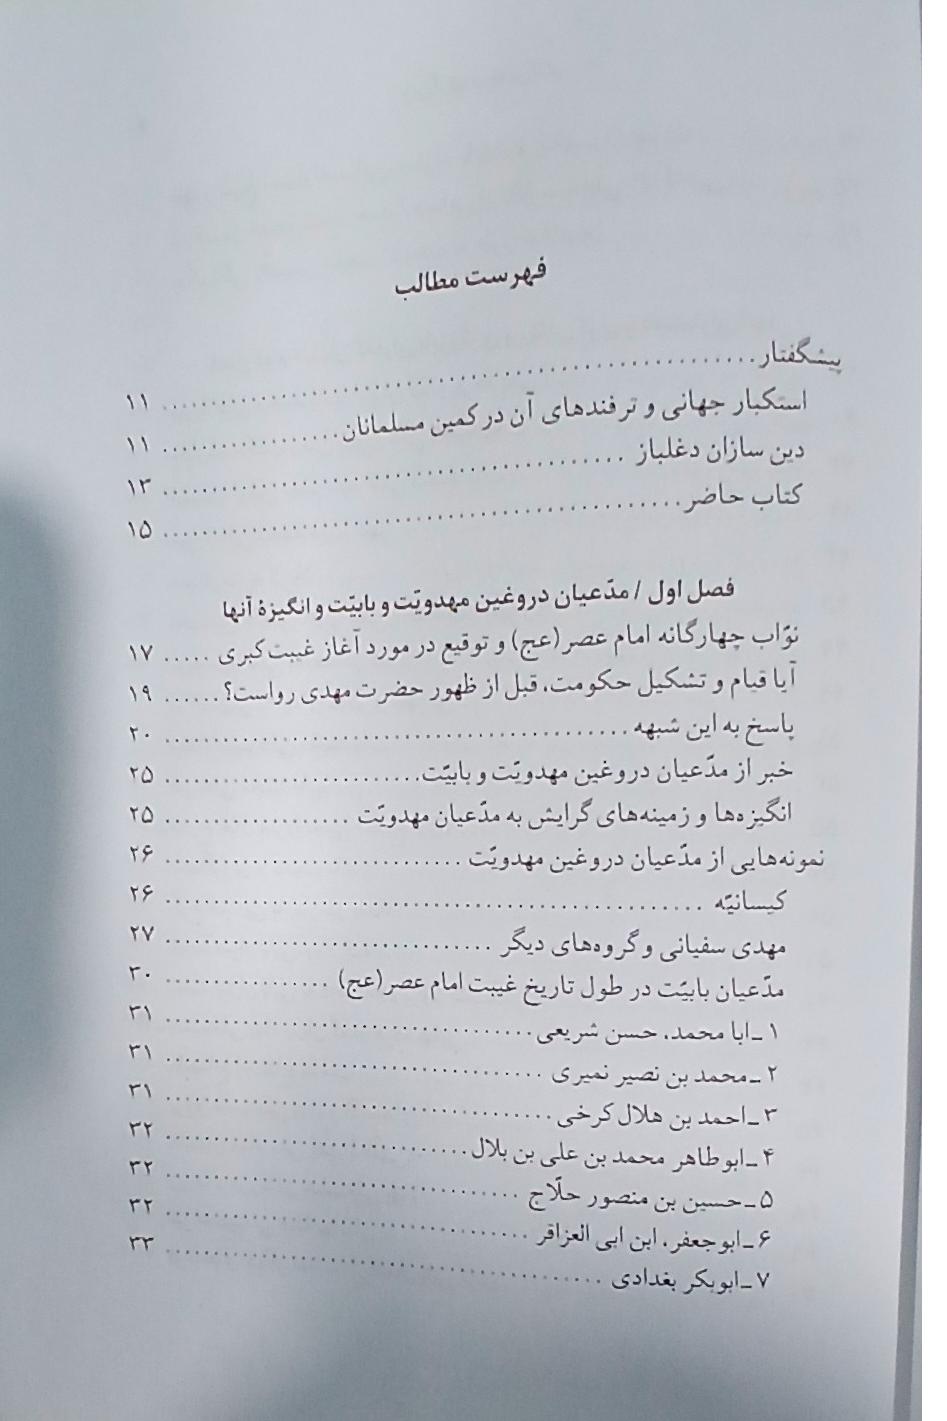 فهرست مطالب
پیشگفتار ........................................ ۱۱
استکبار جهانی و ترفندهای آن در کمین مسلمانان .................. ۱۱
دین سازان دغلباز ........................................ ۱۳
کتاب حاضر ........................................ ۱۵
فصل اول / مدّعیان دروغین مهدویّت و بابیّت و انگیزهٔ آنها
نوّاب چهارگانه امام عصر (عج) و توقیع در مورد آغاز غیبت کبری ..... ۱۷
آیا قیام و تشکیل حکومت، قبل از ظهور حضرت مهدی رواست؟ ...... ۱۹
پاسخ به این شبهه ........................................ ۲۰
خبر از مدّعیان دروغین مهدویّت و بابیّت .......................... ۲۵
انگیزه‌ها و زمینه‌های گرایش به مدّعیان مهدویّت ................... ۲۵
نمونه‌هایی از مدّعیان دروغین مهدویّت .............................. ۲۶
کیسانیّه ........................................ ۲۶
مهدی سفیانی و گروه‌های دیگر ................................. ۲۷
مدّعیان بابیّت در طول تاریخ غیبت امام عصر (عج) ................. ۳۰
۱ ـ ابا محمد، حسن شریعی ..................................... ۳۱
۲ ـ محمد بن نصیر نمیری ...................................... ۳۱
۳ ـ احمد بن هلال کرخی ....................................... ۳۱
۴ ـ ابو طاهر محمد بن علی بن بلال .............................. ۳۲
۵ ـ حسین بن منصور حلّاج .................................... ۳۲
۶ ـ ابوجعفر، ابن ابی العزاقر ..................................... ۳۲
۷ ـ ابوبکر بغدادی ........................................ ۳۳